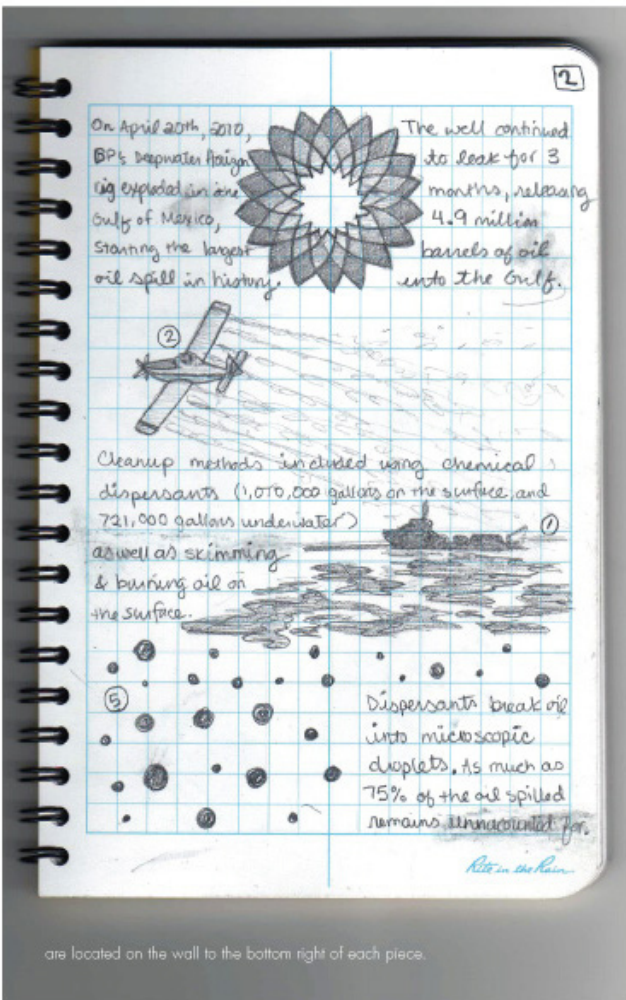 2
On April 20th, 2010,
BP's Deepwater Horizon
rig exploded in the
Gulf of Mexico,
starting the largest
oil spill in history.
The well continued
to leak for 3
months, releasing
4.9 million
barrels of oil
into the Gulf.
2
Cleanup methods included using chemical
dispersants (1,070,000 gallons on the surface, and
721,000 gallons underwater)
as well as skimming
& burning oil on
the surface.
1
5
Dispersants break oil
into microscopic
droplets. As much as
75% of the oil spilled
remains unnacounted for.
Rite in the Rain
are located on the wall to the bottom right of each piece.